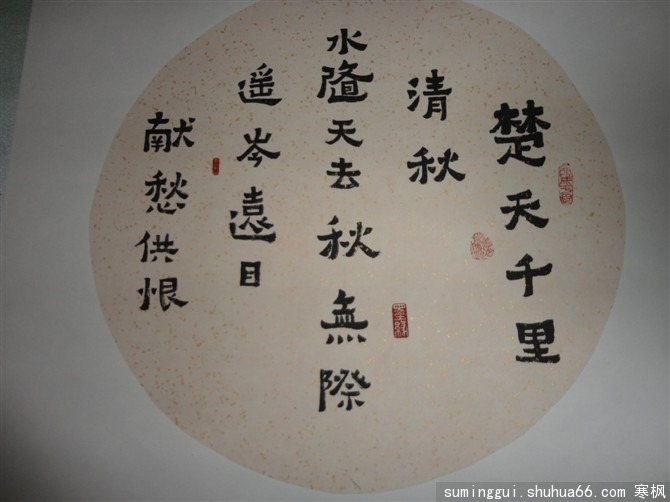 楚天千里
清秋
水隨天去秋無際
遥岑遠目
献愁供恨
suminggui.shuhua66.com 寒枫